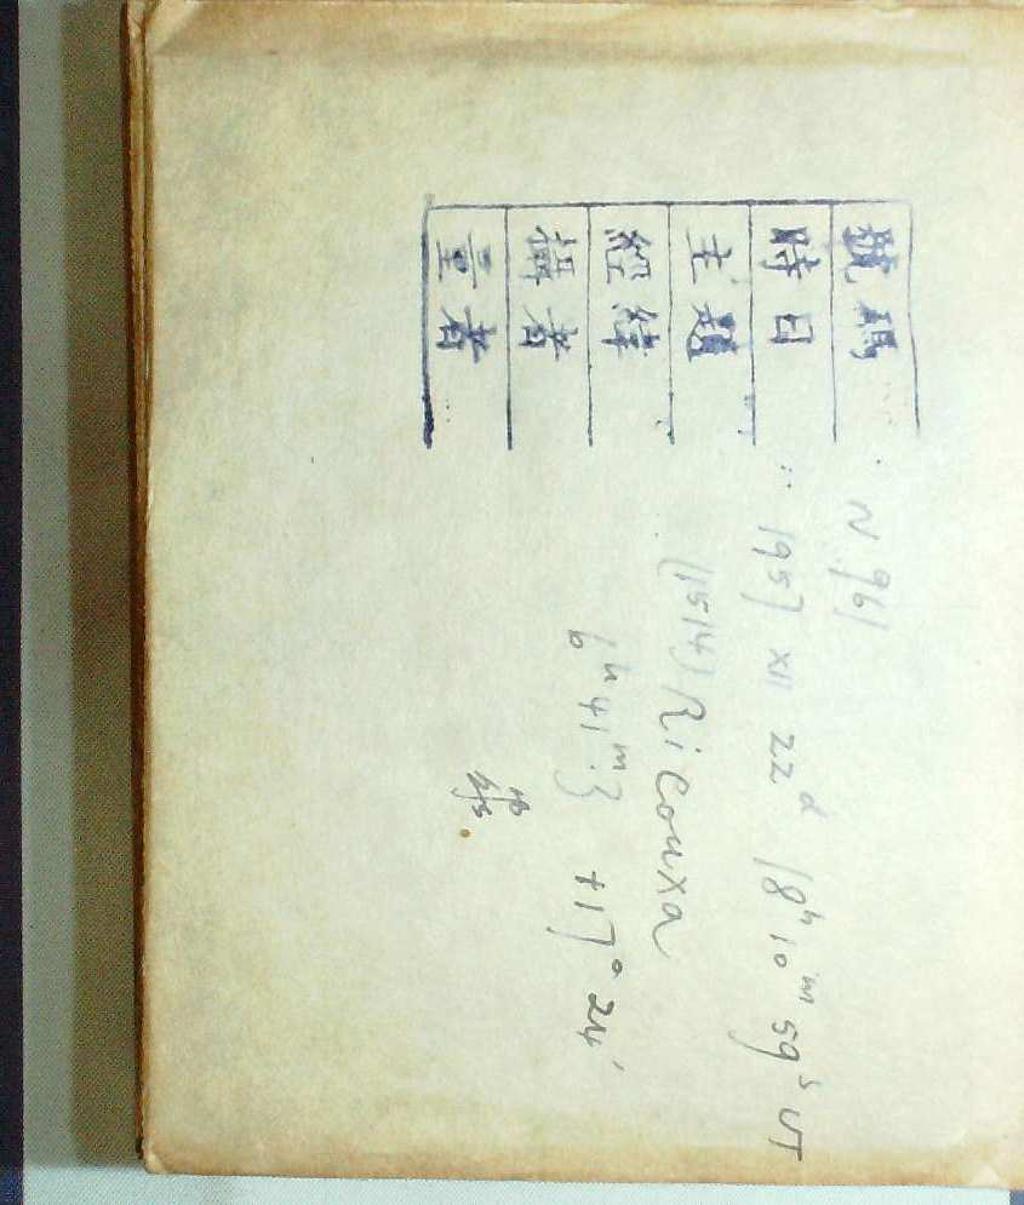 號碼 N 961
時日 1957 XII 22ᵈ 18ʰ10ᵐ59ˢ UT
主題 (1514) Ricouxa
經緯 6ʰ41ᵐ.3 +17°24'
攝者
量者